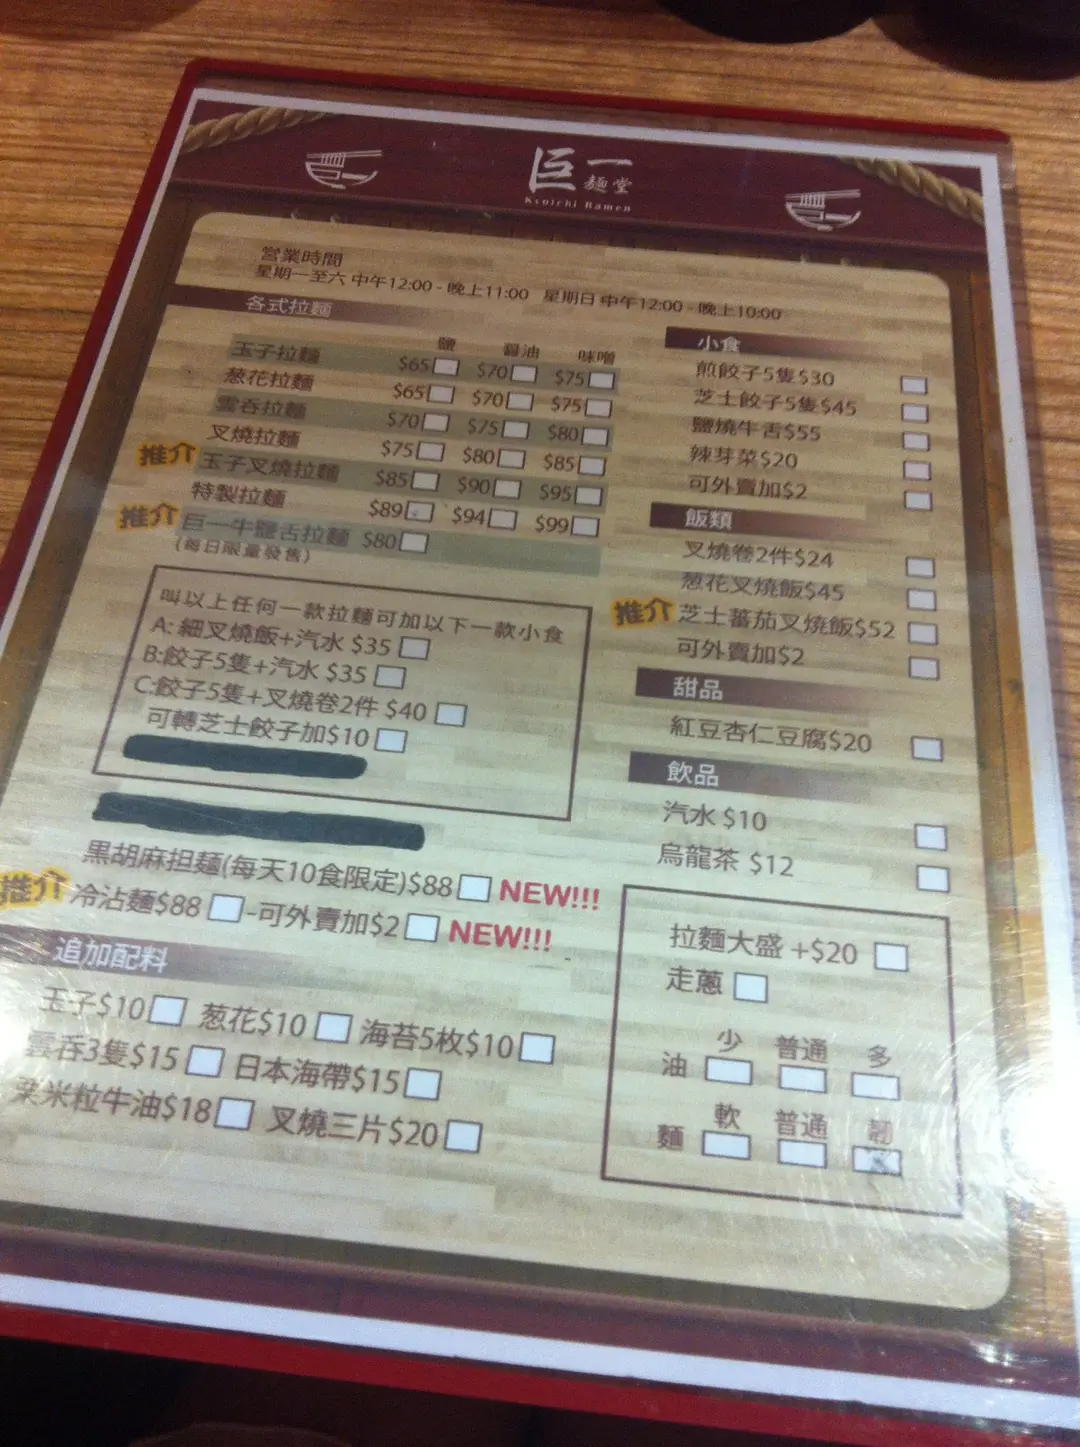 巨一
麵堂
Kyoichi Ramen
營業時間
星期一至六 中午12:00 - 晚上11:00 星期日 中午12:00 - 晚上10:00
各式拉麵
鹽 醤油 味噌
玉子拉麵 $65 $70 $75
葱花拉麵 $65 $70 $75
雲吞拉麵 $70 $75 $80
叉燒拉麵 $75 $80 $85
推介 玉子叉燒拉麵 $85 $90 $95
特製拉麵 $89 $94 $99
推介 巨一牛鹽舌拉麵 $80
(每日限量發售)
叫以上任何一款拉麵可加以下一款小食
A: 細叉燒飯+汽水 $35
B:餃子5隻+汽水 $35
C:餃子5隻+叉燒卷2件 $40
可轉芝士餃子加$10
黑胡麻担麵(每天10食限定)$88 NEW!!!
推介 冷沾麵$88 -可外賣加$2 NEW!!!
追加配料
玉子$10 葱花$10 海苔5枚$10
雲吞3隻$15 日本海帶$15
粟米粒牛油$18 叉燒三片$20
小食
煎餃子5隻$30
芝士餃子5隻$45
鹽燒牛舌$55
辣芽菜$20
可外賣加$2
飯類
叉燒卷2件$24
葱花叉燒飯$45
推介 芝士蕃茄叉燒飯$52
可外賣加$2
甜品
紅豆杏仁豆腐$20
飲品
汽水 $10
烏龍茶 $12
拉麵大盛 +$20
走蔥
少 普通 多
油
軟 普通 韌
麵